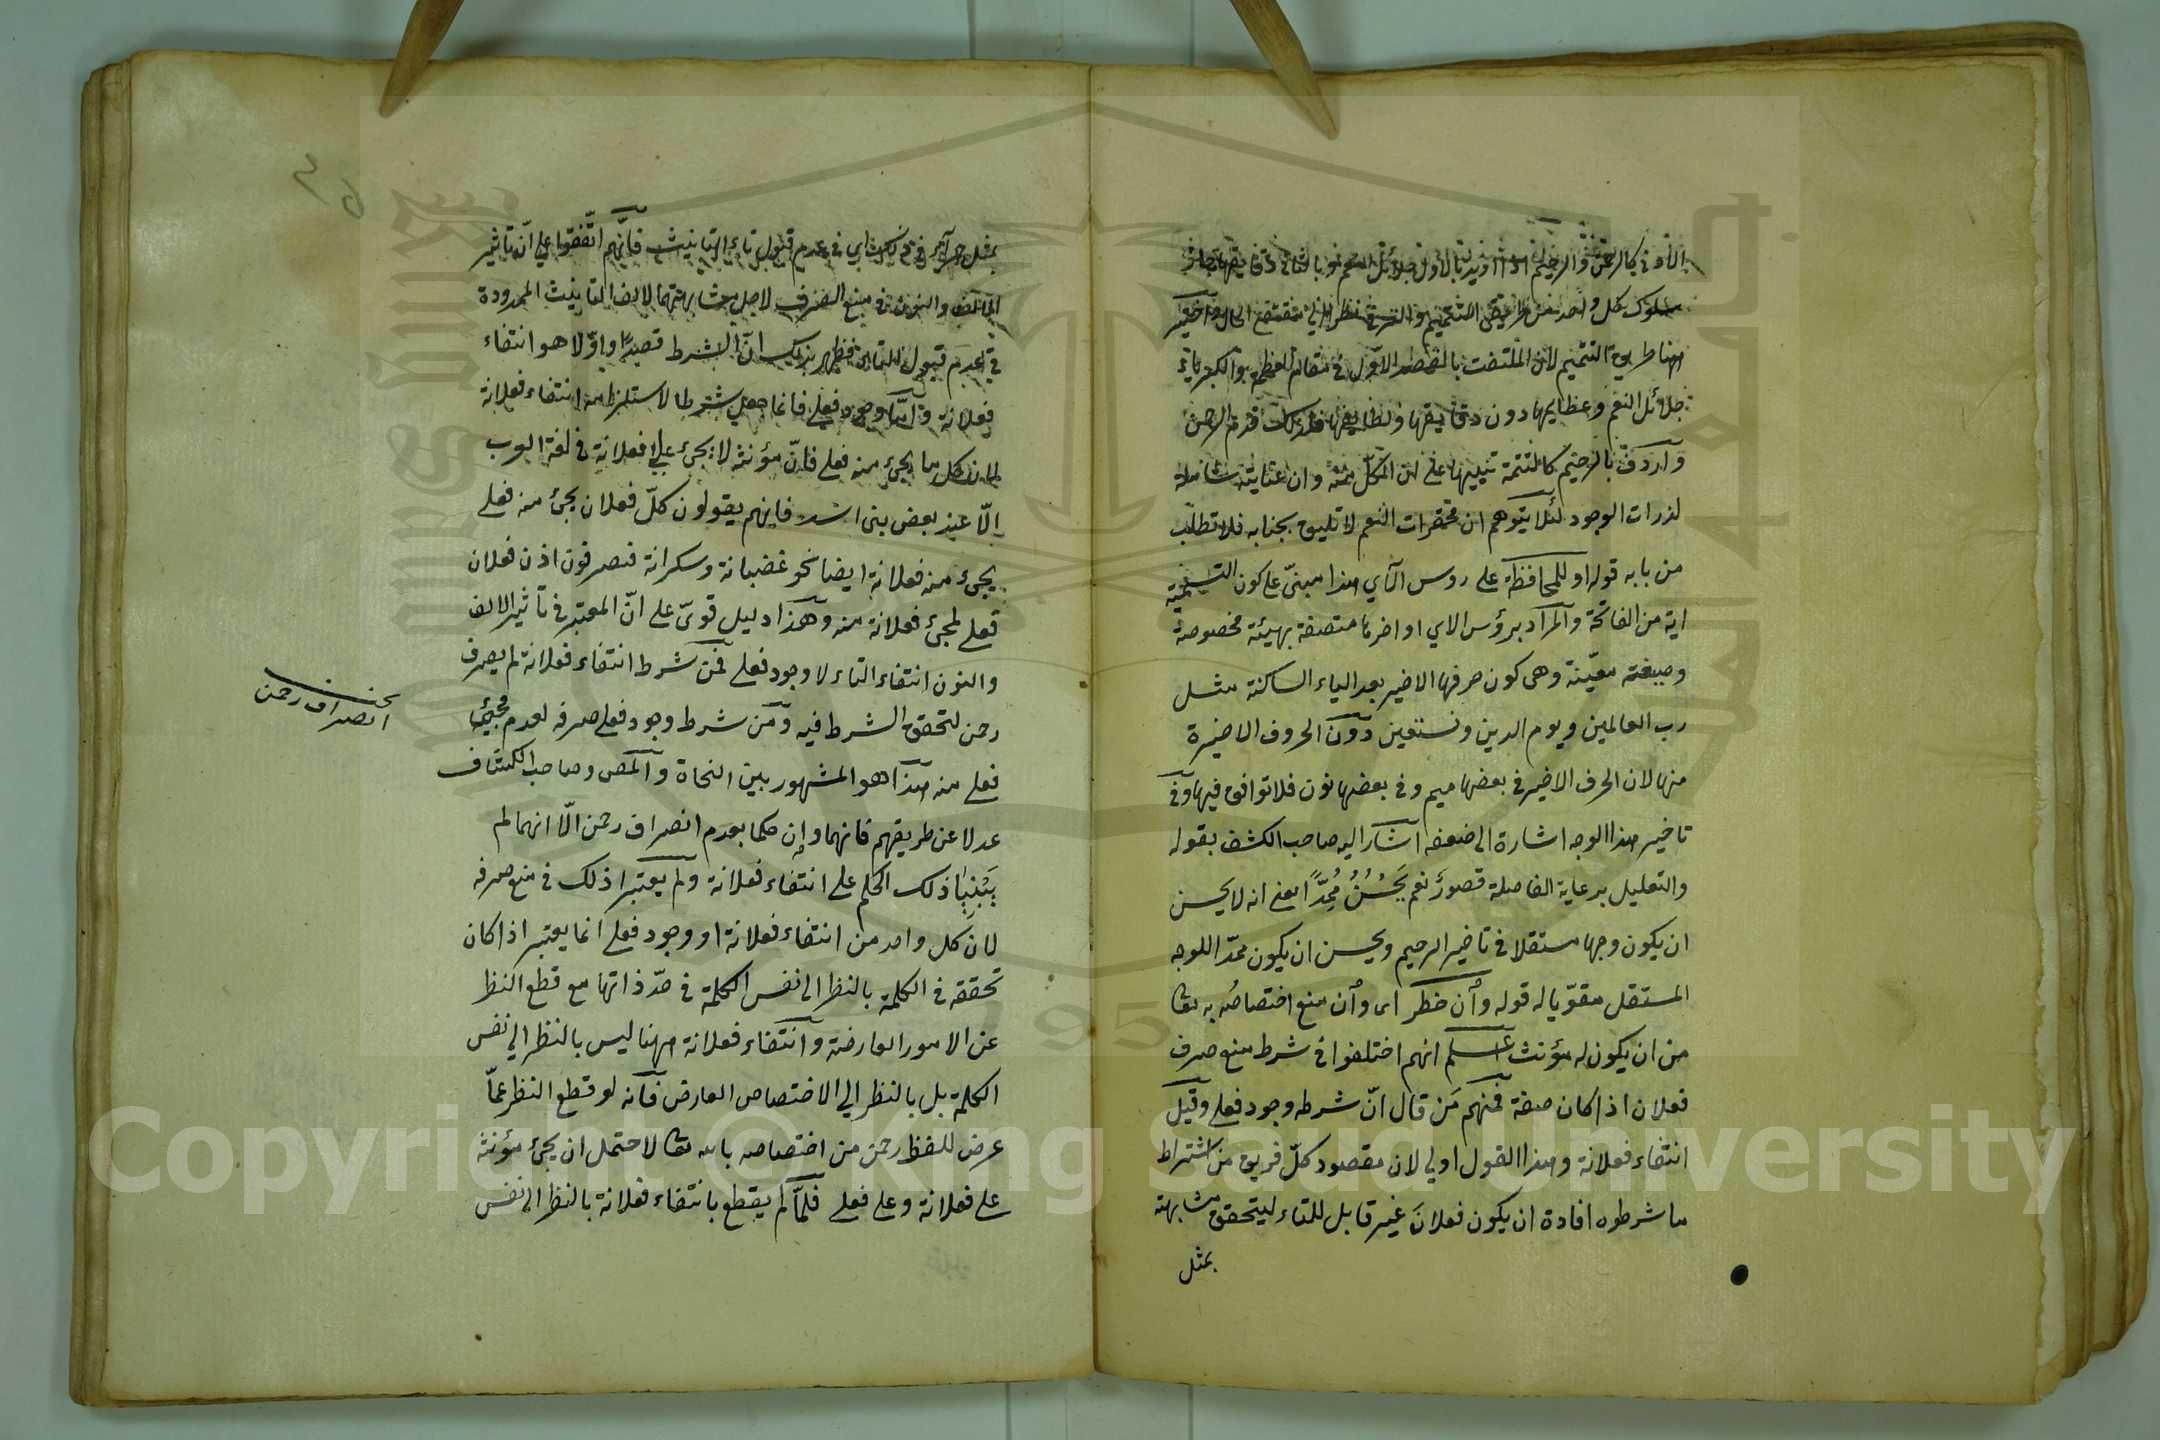 سلوك كل واحد من طريقي التتميم والترقي نظرا الى مقتضى الحال
ههنا طريق التتميم لان الملتفت بالقصد الاول في مقام العظمة والكبرياء
جلائل النعم وعظايمها دون دقايقها ولطايفها فلذلك قدم الرحمن
واردف بالرحيم كالتتمة تنبيها على ان الكل منه وان عنايته شاملة
لذرات الوجود لئلا يتوهم ان محقرات النعم لا تليق بجنابه فلا تطلب
من بابه قوله او للمحافظة على روس الآي هذا مبنيّ على كون التسمية
اية من الفاتحة والمراد برؤس الاي اواخرها متصفة بهيئة مخصوصة
وصيغة معيّنة وهى كون حرفها الاخير بعد الياء الساكنة مثل
رب العالمين ويوم الدين ونستعين دون الحروف الاخيرة
منها لان الحرف الاخير في بعضها ميم وفي بعضها نون فلا توافق فيها وفي
تاخير هذا الوجه اشارة الى ضعفه اشار اليه صاحب الكشف بقوله
والتعليل برعاية الفاصلة قصورٌ نعم يَحْسُنُ مُمِدًّا يعنى انه لا يحسن
ان يكون وجها مستقلا في تاخير الرحيم ويحسن ان يكون ممدّا للوجه
المستقل مقوّيا له قوله وأن حظر اى وأن منع اختصاصُه به تعا
من ان يكون له مؤنث اعلم انهم اختلفوا في شرط منع صرف
فعلان اذا كان صفة فمنهم مَن قال انّ شرطه وجود فعلى وقيل
انتفاء فعلانة وهذا القول اولي لان مقصود كلّ فريق من اشتراط
ما شرطوه افادة ان يكون فعلانَ غير قابل للتاء ليتحقق مشابهته
بمثل
بمثل حمراء في ذلك اي في عدم قبول تاء التانيث فانّهم اتّفقوا على انّ تاثير
الالف والنون في منع الصرف لاجل مشابهتهما لالف التانيث الممدودة
في عدم قبول التاء فظهر بذلك انّ الشرط قصدًا واوّلا هو انتفاء
فعلانة وامّا وجود فعلى فانما جعل شرطا لاستلزامه انتفاء فعلانة
لان كل ما يجئ منه فعلى فانّ مؤنثه لا يجئ على فعلانة في لغة العرب
الّا عند بعض بنى اسد فانهم يقولون كلّ فعلان يجئ منه فعلى
يجىء منه فعلانة ايضا نحو غضبانة وسكرانة فيصرفون اذن فعلان
فعلى لمجئ فعلانة منه وهذا دليل قوىّ على انّ المعتبر في تاثير الالف
والنون انتفاء التاء لا وجود فعلى فمن شرط انتفاء فعلانة لم يصرف
رحمن لتحقق الشرط فيه ومن شرط وجود فعلى صرفه لعدم مجيئ
فعلى منه هذا هو المشهور بين النحاة والمص وصاحب الكشاف
عدلا عن طريقهم فانهما وإن حكما بعدم انصراف رحمن الّا انهما لم
يَبْنِيَا ذلك الحكم على انتفاء فعلانة ولم يعتبرا ذلك في منع صرفه
لان كل واحد من انتفاء فعلانة او وجود فعلى انما يعتبر اذا كان
تحققه في الكلمة بالنظر الى نفس الكلمة في حدّ ذاتها مع قطع النظر
عن الامور العارضة وانتفاء فعلانة ههنا ليس بالنظر الى نفس
الكلمة بل بالنظر الى الاختصاص العارض فانه لو قطع النظر عمّا
عرض للفظ رحمن من اختصاصه بالله تعا لاحتمل ان يجئ مؤنثه
على فعلانة وعلى فعلى فلمّا لم يقطع بانتفاء فعلانة بالنظر الى نفس
انصراف رحمن
Copyright © King Saud University